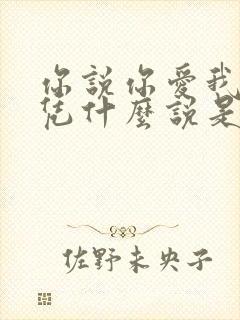 你說你愛我
凭什麼說是
佐野未央子